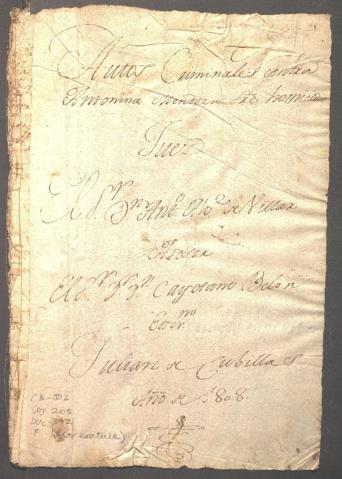 Autos Criminales contra
Antonina Mendoza sre homicidio
Juez
El Sor Dn Anto de Villar
Asesor
El Dor Dn Cayetano Belón
Escrno
Julian de Cubillas
Año de 1808.
205